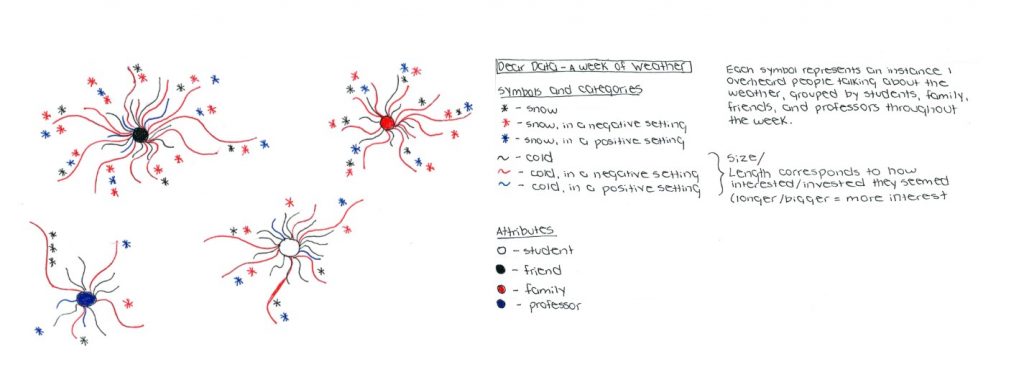 Dear Data - A week of weather
Symbols and categories
- snow
- snow, in a negative setting
- snow, in a positive setting
- cold
- cold, in a negative setting
- cold, in a positive setting
Attributes
- student
- friend
- family
- professor
Each symbol represents an instance I
overheard people talking about the
weather, grouped by students, family,
friends, and professors throughout
the week.
Size/
Length corresponds to how
interested/invested they seemed
(longer/bigger = more interest